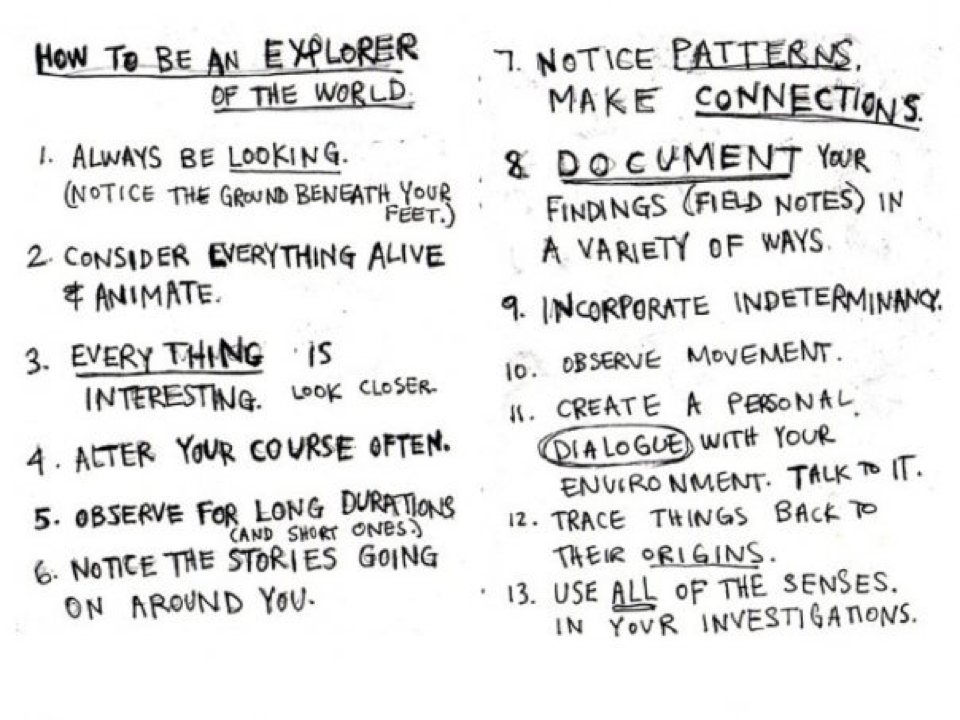 HOW TO BE AN EXPLORER
OF THE WORLD
1. ALWAYS BE LOOKING.
(NOTICE THE GROUND BENEATH YOUR
FEET.)
2. CONSIDER EVERYTHING ALIVE
& ANIMATE.
3. EVERY THING IS
INTERESTING. LOOK CLOSER.
4. ALTER YOUR COURSE OFTEN.
5. OBSERVE FOR LONG DURATIONS
(AND SHORT ONES.)
6. NOTICE THE STORIES GOING
ON AROUND YOU.
7. NOTICE PATTERNS.
MAKE CONNECTIONS.
8 DOCUMENT YOUR
FINDINGS (FIELD NOTES) IN
A VARIETY OF WAYS.
9. INCORPORATE INDETERMINANCY.
10. OBSERVE MOVEMENT.
11. CREATE A PERSONAL
DIALOGUE WITH YOUR
ENVIRONMENT. TALK TO IT.
12. TRACE THINGS BACK TO
THEIR ORIGINS.
13. USE ALL OF THE SENSES.
IN YOUR INVESTIGATIONS.